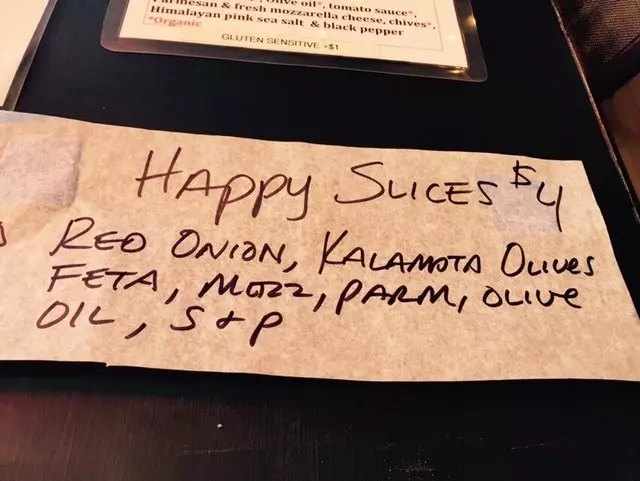 olive oil*, tomato sauce*,
Parmesan & fresh mozzarella cheese, chives*,
Himalayan pink sea salt & black pepper
*Organic
GLUTEN SENSITIVE +$1
HAPPY SLICES $4
RED ONION, KALAMATA OLIVES
FETA, MOZZ, PARM, OLIVE
OIL, S & P